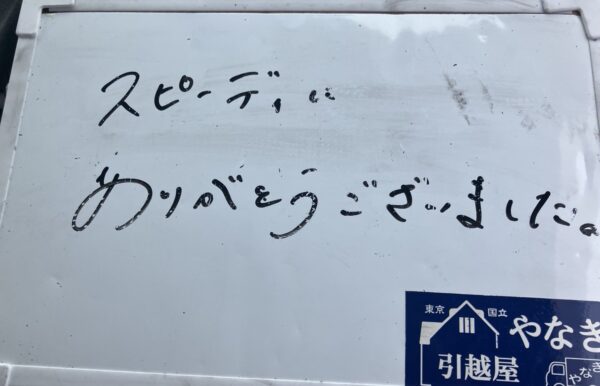 スピーディに
ありがとうございました。
東京 国立
やなぎ
引越屋
やなぎ